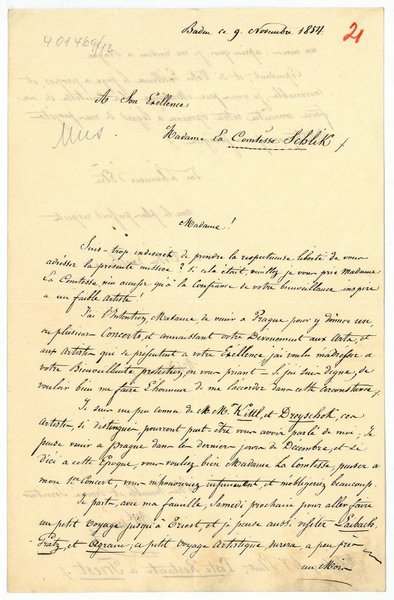 401469/12
21
Baden ce 9. Novembre 1854.
A Son Exellence
Mus.
Madame La Comtesse Schlik
Madame!
Suis-trop indiscret de prendre la respectueuse liberté de vous
adresser la présente missive? Si cela était, veuillez je vous prie Madame
La Comtesse, n'en accuser qu'à la confiance de votre bienveillance inspire
a un faible artiste!
J'ai l'Intention, Madame, de venir à Prague pour y donner un,
ou plusieurs Concerts, et connaissant votre Devouement aux Arts, et
aux Artistes qui se présentent a votre Exellence, j'ai voulu m'adresser a
votre Bienveillante protection, en vous priant – si j'en suis digne, de
vouloir bien me faire l'honneur de me l'accorder dans cette circonstance,
Je suis un peu connu de M.M. Kittl, et Dreyschok, ces
Artistes si distingués pourront peut être vous avoir parlé de moi; Je
pense venir à Prague dans les derniers jours de Decembre, et si
d'ici a cette Epoque, vous vouliez bien Madame La Comtesse, penser a
mon 1er Concert, vous m'honoreriez infiniment, et m'obligerez beaucoup.
Je parts, avec ma famille, Samedi prochain pour aller faire
un petit voyage jusqu'à Triest, et je pense aussi visiter Laibach,
Gratz, et Agram, ce petit voyage Artistique durera a peu près
un Mois